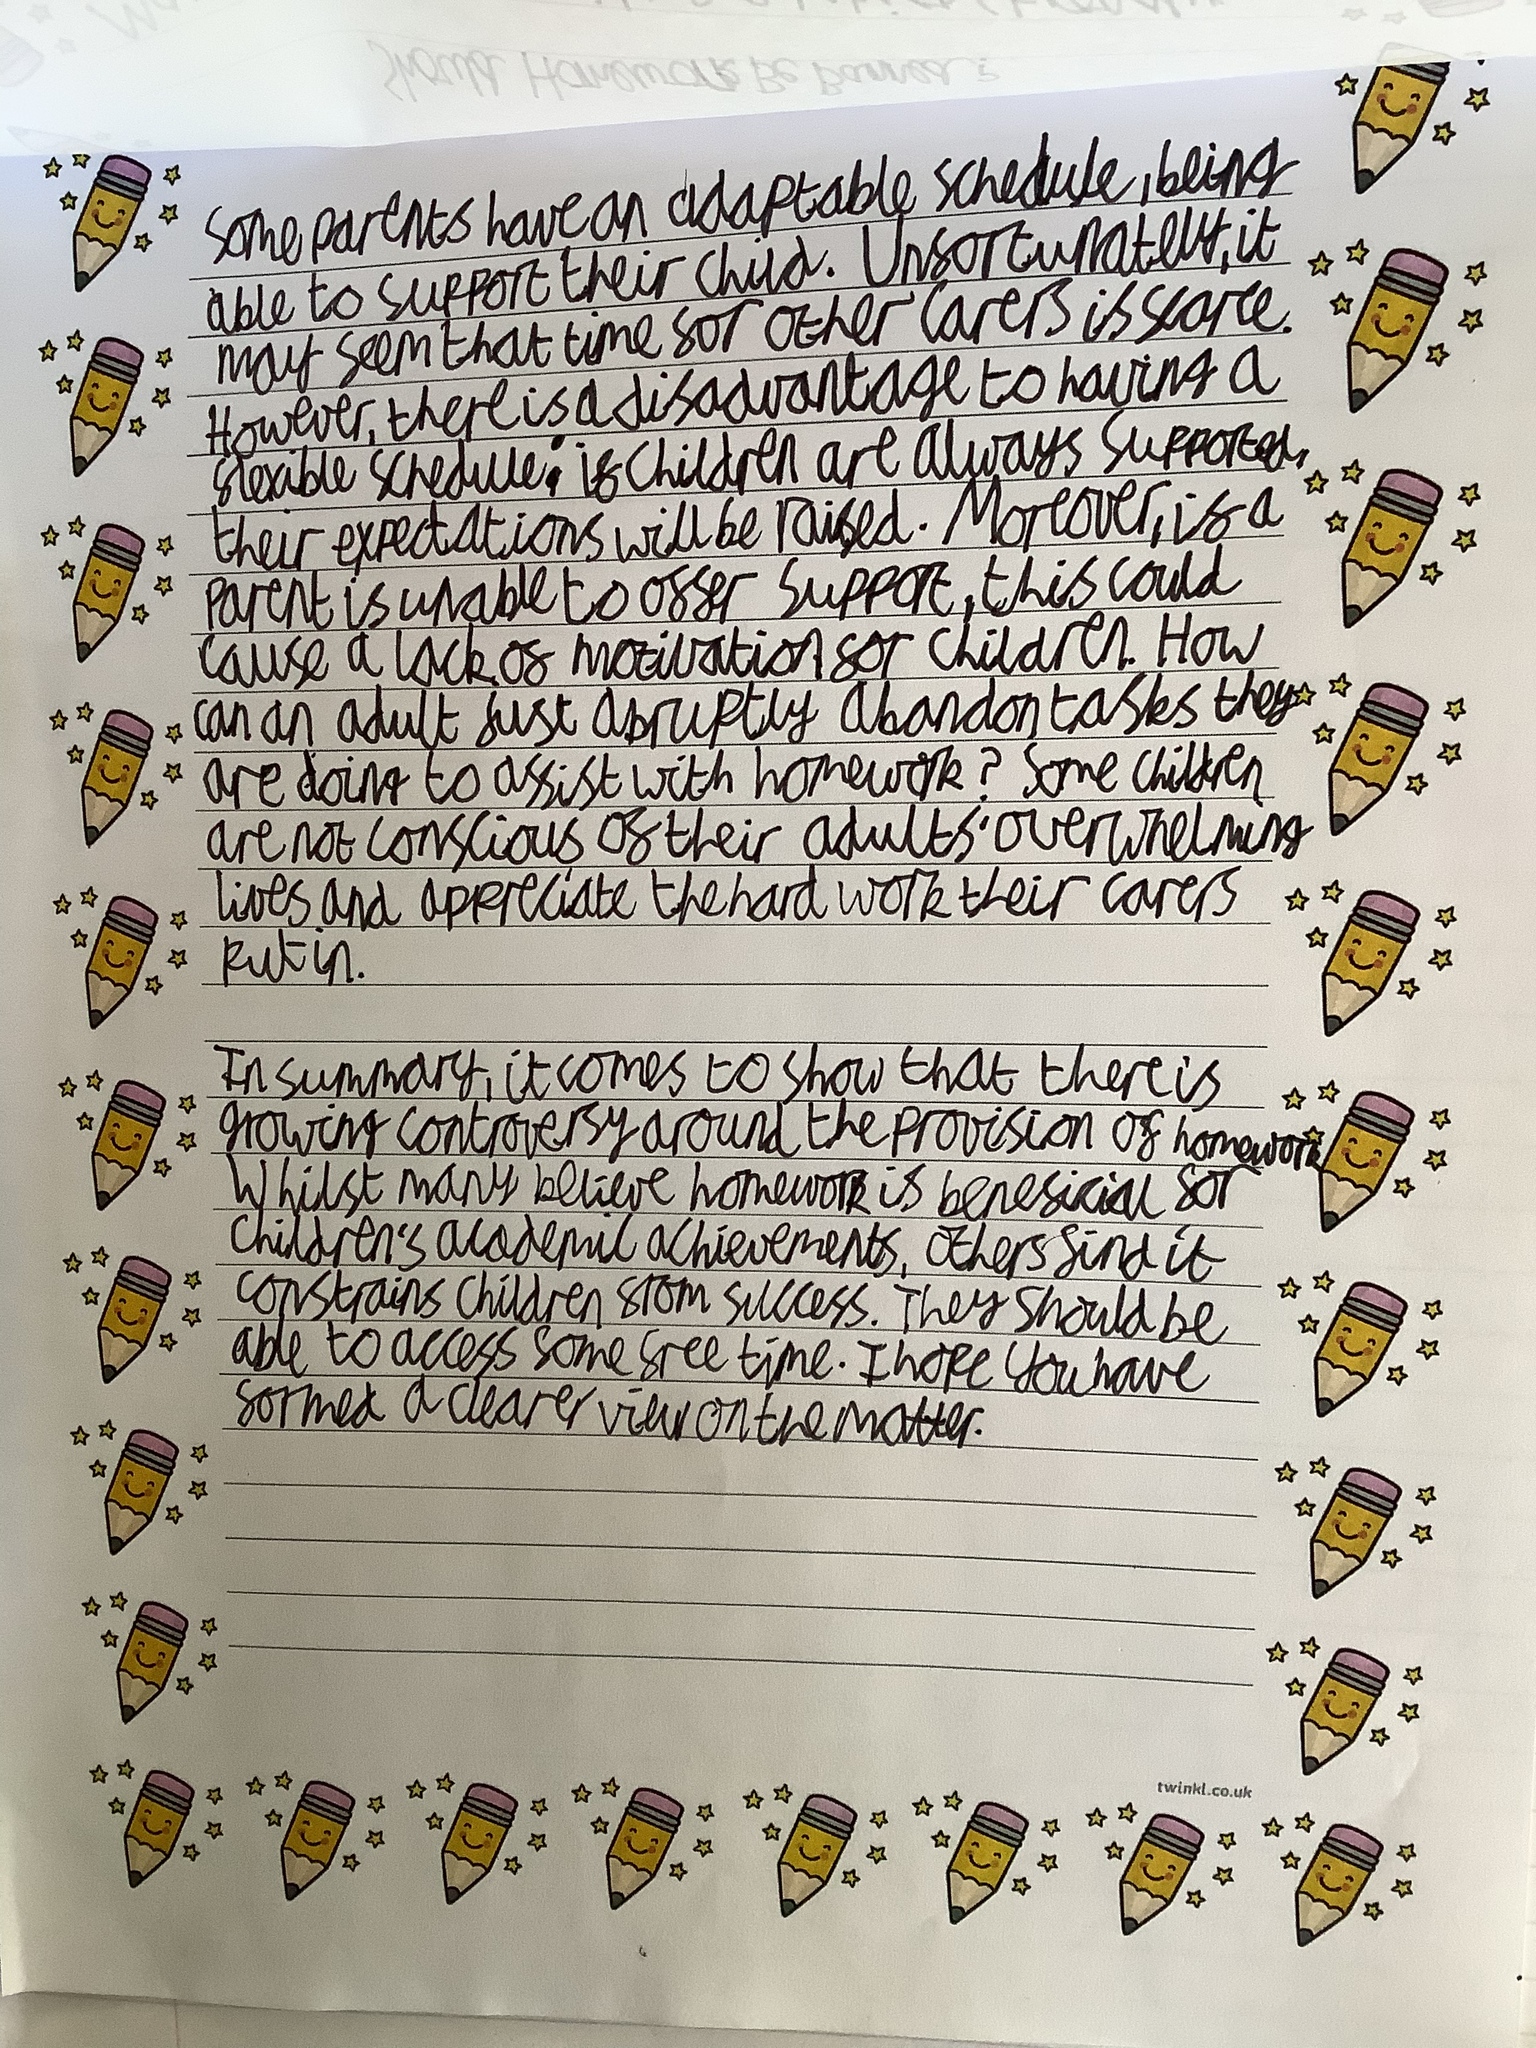 Should Homework Be Banned?
Some parents have an adaptable schedule, being
able to support their child. Unfortunately, it
may seem that time for other carers is scarce.
However, there is a disadvantage to having a
flexible schedule: if children are always supported,
their expectations will be raised. Moreover, if a
parent is unable to offer support, this could
cause a lack of motivation for children. How
can an adult just abruptly abandon tasks they
are doing to assist with homework? Some children
are not conscious of their adults' overwhelming
lives and appreciate the hard work their carers
put in.
In summary, it comes to show that there is
growing controversy around the provision of homework.
Whilst many believe homework is beneficial for
children's academic achievements, others find it
constrains children from success. They should be
able to access some free time. I hope you have
formed a clearer view on the matter.
twinkl.co.uk